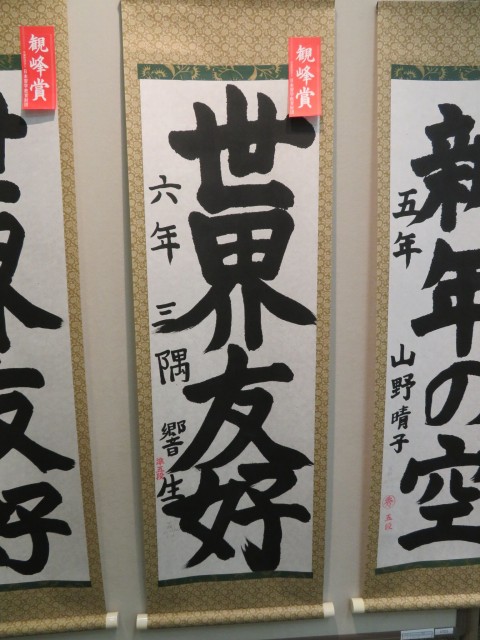 新年の空
五年 山野晴子
五段
観峰賞
世界友好
六年 三隅響生
準五段
観峰賞
世界友好